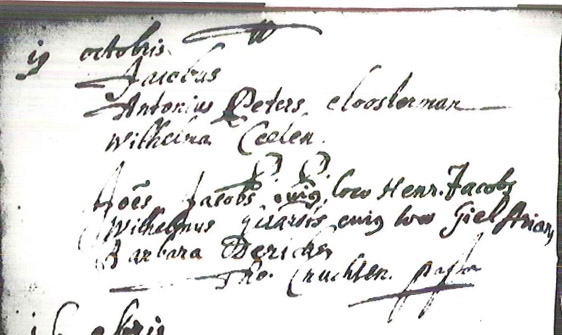 19 octobris
Jacobus
Antonius Peters cloosterman
Wilhelma Ceelen
P P
Joēs Jacobs cuiq loco Henr. Jacobs
Wilhelmus cuiq loco Giel Arian
Barbara Dericks
Tho. Cruchten. pastor